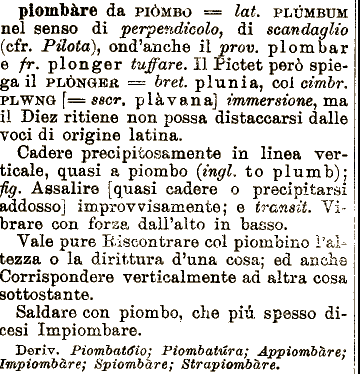 piombàre da PIÓMBO = lat. PLÚMBUM
nel senso di perpendicolo, di scandaglio
(cfr. Pilota), ond'anche il prov. plombar
e fr. plonger tuffare. Il Pictet però spie-
ga il PLÒNGER = bret. plunia, col cimbr.
PLWNG [= sscr. plàvana] immersione, ma
il Diez ritiene non possa distaccarsi dalle
voci di origine latina.
Cadere precipitosamente in linea ver-
ticale, quasi a piombo (ingl. to plumb);
fig. Assalire [quasi cadere o precipitarsi
addosso] improvvisamente; e transit. Vi-
brare con forza dall'alto in basso.
Vale pure Riscontrare col piombino l'al-
tezza o la dirittura d'una cosa; ed anche
Corrispondere verticalmente ad altra cosa
sottostante.
Saldare con piombo, che piú spesso di-
cesi Impiombare.
Deriv. Piombatóio; Piombatúra; Appiombàre;
Impiombàre; Spiombàre; Strapiombàre.